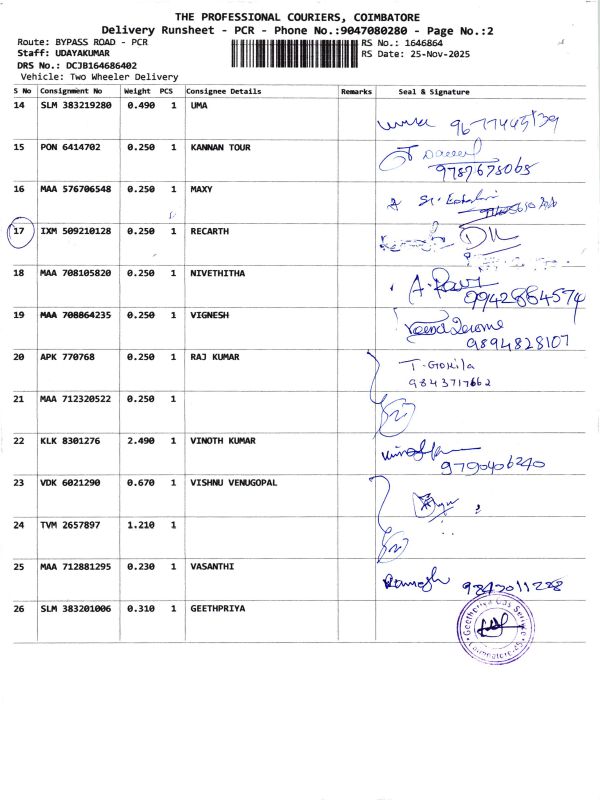 THE PROFESSIONAL COURIERS, COIMBATORE
Delivery Runsheet - PCR - Phone No.:9047080280 - Page No.:2
Route: BYPASS ROAD - PCR RS No.: 1646864
Staff: UDAYAKUMAR RS Date: 25-Nov-2025
DRS No.: DCJB164686402
Vehicle: Two Wheeler Delivery
S No Consignment No Weight PCS Consignee Details Remarks Seal & Signature
14 SLM 383219280 0.490 1 UMA
15 PON 6414702 0.250 1 KANNAN TOUR
9787678068
16 MAA 576706548 0.250 1 MAXY
17 IXM 509210128 0.250 1 RECARTH
18 MAA 708105820 0.250 1 NIVETHITHA
A. Ravi 9942864574
19 MAA 708864235 0.250 1 VIGNESH
9894828107
20 APK 770768 0.250 1 RAJ KUMAR T-Gokila
9843717662
21 MAA 712320522 0.250 1
22 KLK 8301276 2.490 1 VINOTH KUMAR
9790406240
23 VDK 6021290 0.670 1 VISHNU VENUGOPAL
24 TVM 2657897 1.210 1
25 MAA 712881295 0.230 1 VASANTHI Ramesh 9843011228
26 SLM 383201006 0.310 1 GEETHPRIYA